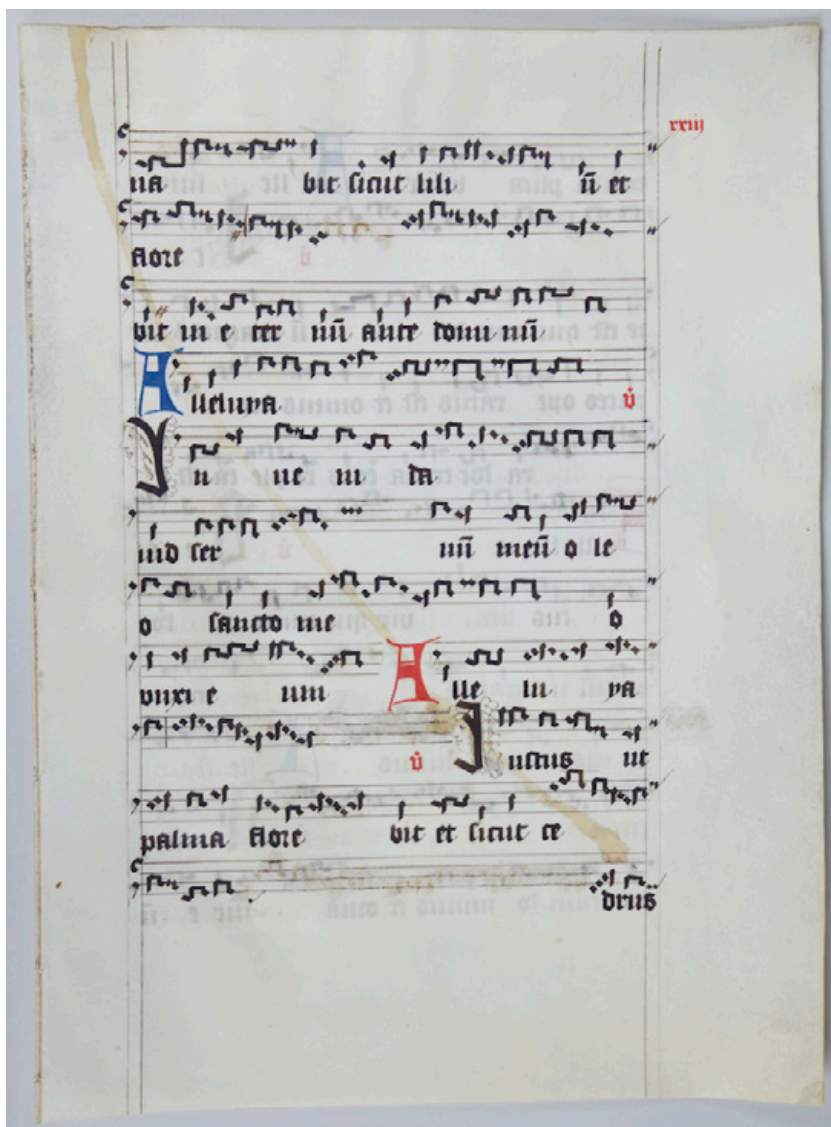 xxiij
na bit sicut lili ū et
flore
bit in e ter nū ante domi nū
Alleluya v̇
In ue ni da
uid ser uū meū o le
o sancto me o
vnxi e um Alle lu ya
v̇ Iustus ut
palma flore bit et sicut ce
drus